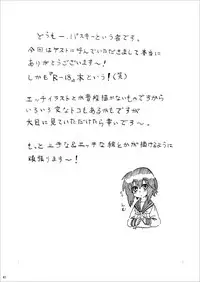 どうもー、パスキーという者です。
今回はゲストに呼んでいただきまして本当に
ありがとうございます〜!
しかも『R-18』本という!(笑)
エッチイラストとか普段描かないものですから
いろいろ変なトコもあるかもですが
大目に見ていただけたら幸いです〜。
もっと上手な&エッチな絵とかが描けるように
頑張ります〜!